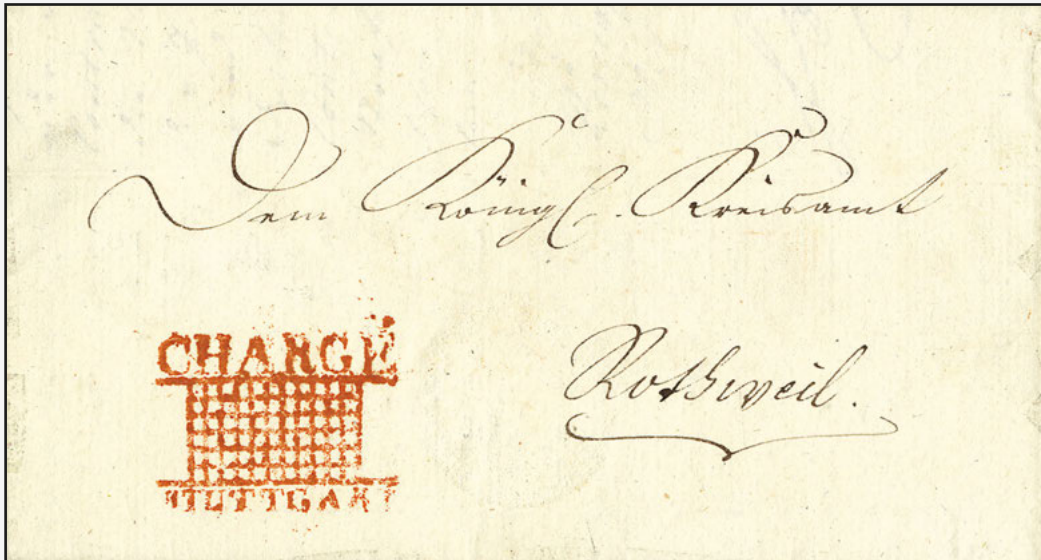 Dem Königl. Kreisamt
Rothweil.
CHARGÉ
STUTTGART